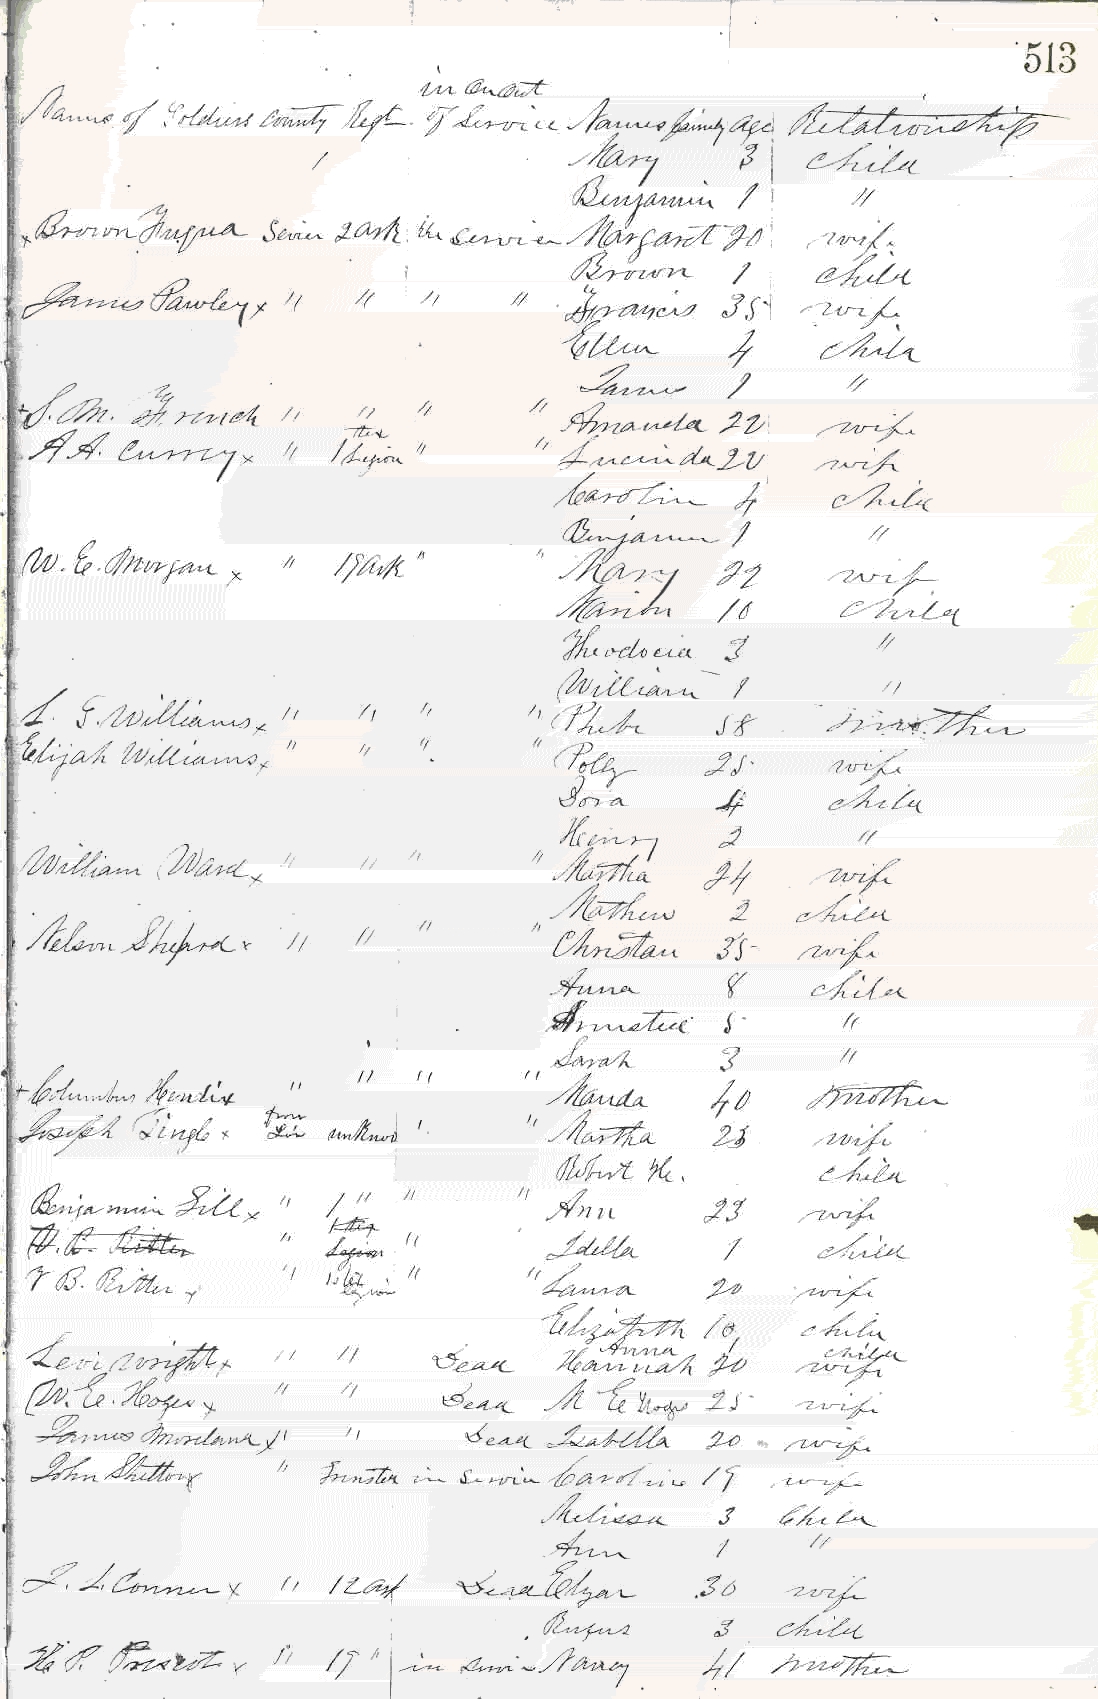 513
in or out
Names of Soldiers County Regt. of Service Names family age Relationship
Mary 3 child
Benjamin 1 "
x Brown Fuqua Sevier 2 Ark in service Margaret 20 wife
Brown 1 child
James Pawley x " " " " Francis 35 wife
Ellen 4 child
James 1 "
+ S. M. French " " " " Amanda 22 wife
A A. Currey x " 1 Legion " " Lucinda 22 wife
Carolin 4 child
Benjamin 1 "
W. E. Morgan x " 19 Ark " " Mary 22 wife
Marion 10 child
Theodocia 3 "
William 1 "
L. G. Williams x " " " " Phebe 58 mother
Elijah Williams x " " " " Polly 25 wife
Dora 4 child
Henry 2 "
William Ward x " " " " Martha 24 wife
Mathew 2 child
Nelson Shepard x " " " " Christan 35 wife
Anna 8 child
5 "
Sarah 3 "
+ Columbus Hendix " " " " Manda 40 mother
Joseph Tingle x from Sir unknow " " Martha 23 wife
Robert He. child
Benjamin Sill x " 1 " " " Ann 23 wife
V. B. Ritter " 1 Legion " Idella 1 child
V B. Ritter x " 1st Legion " " Laura 20 wife
Elizabeth 10 child
Anna 1 child
Levi Wright x " " Dead Hannah 20 wife
W. E. Hoges x " " Dead M E Hoges 25 wife
James Moreland x " " Dead Izabella 20 " wife
John Shelton x " in service Caroline 19 wife
Melissa 3 Child
Ann 1 "
J. L. Conner x " 12 Ark Dead Elizar 30 wife
Rufus 3 child
H. P. Prescott x " 19 " in servic Nancy 41 mother